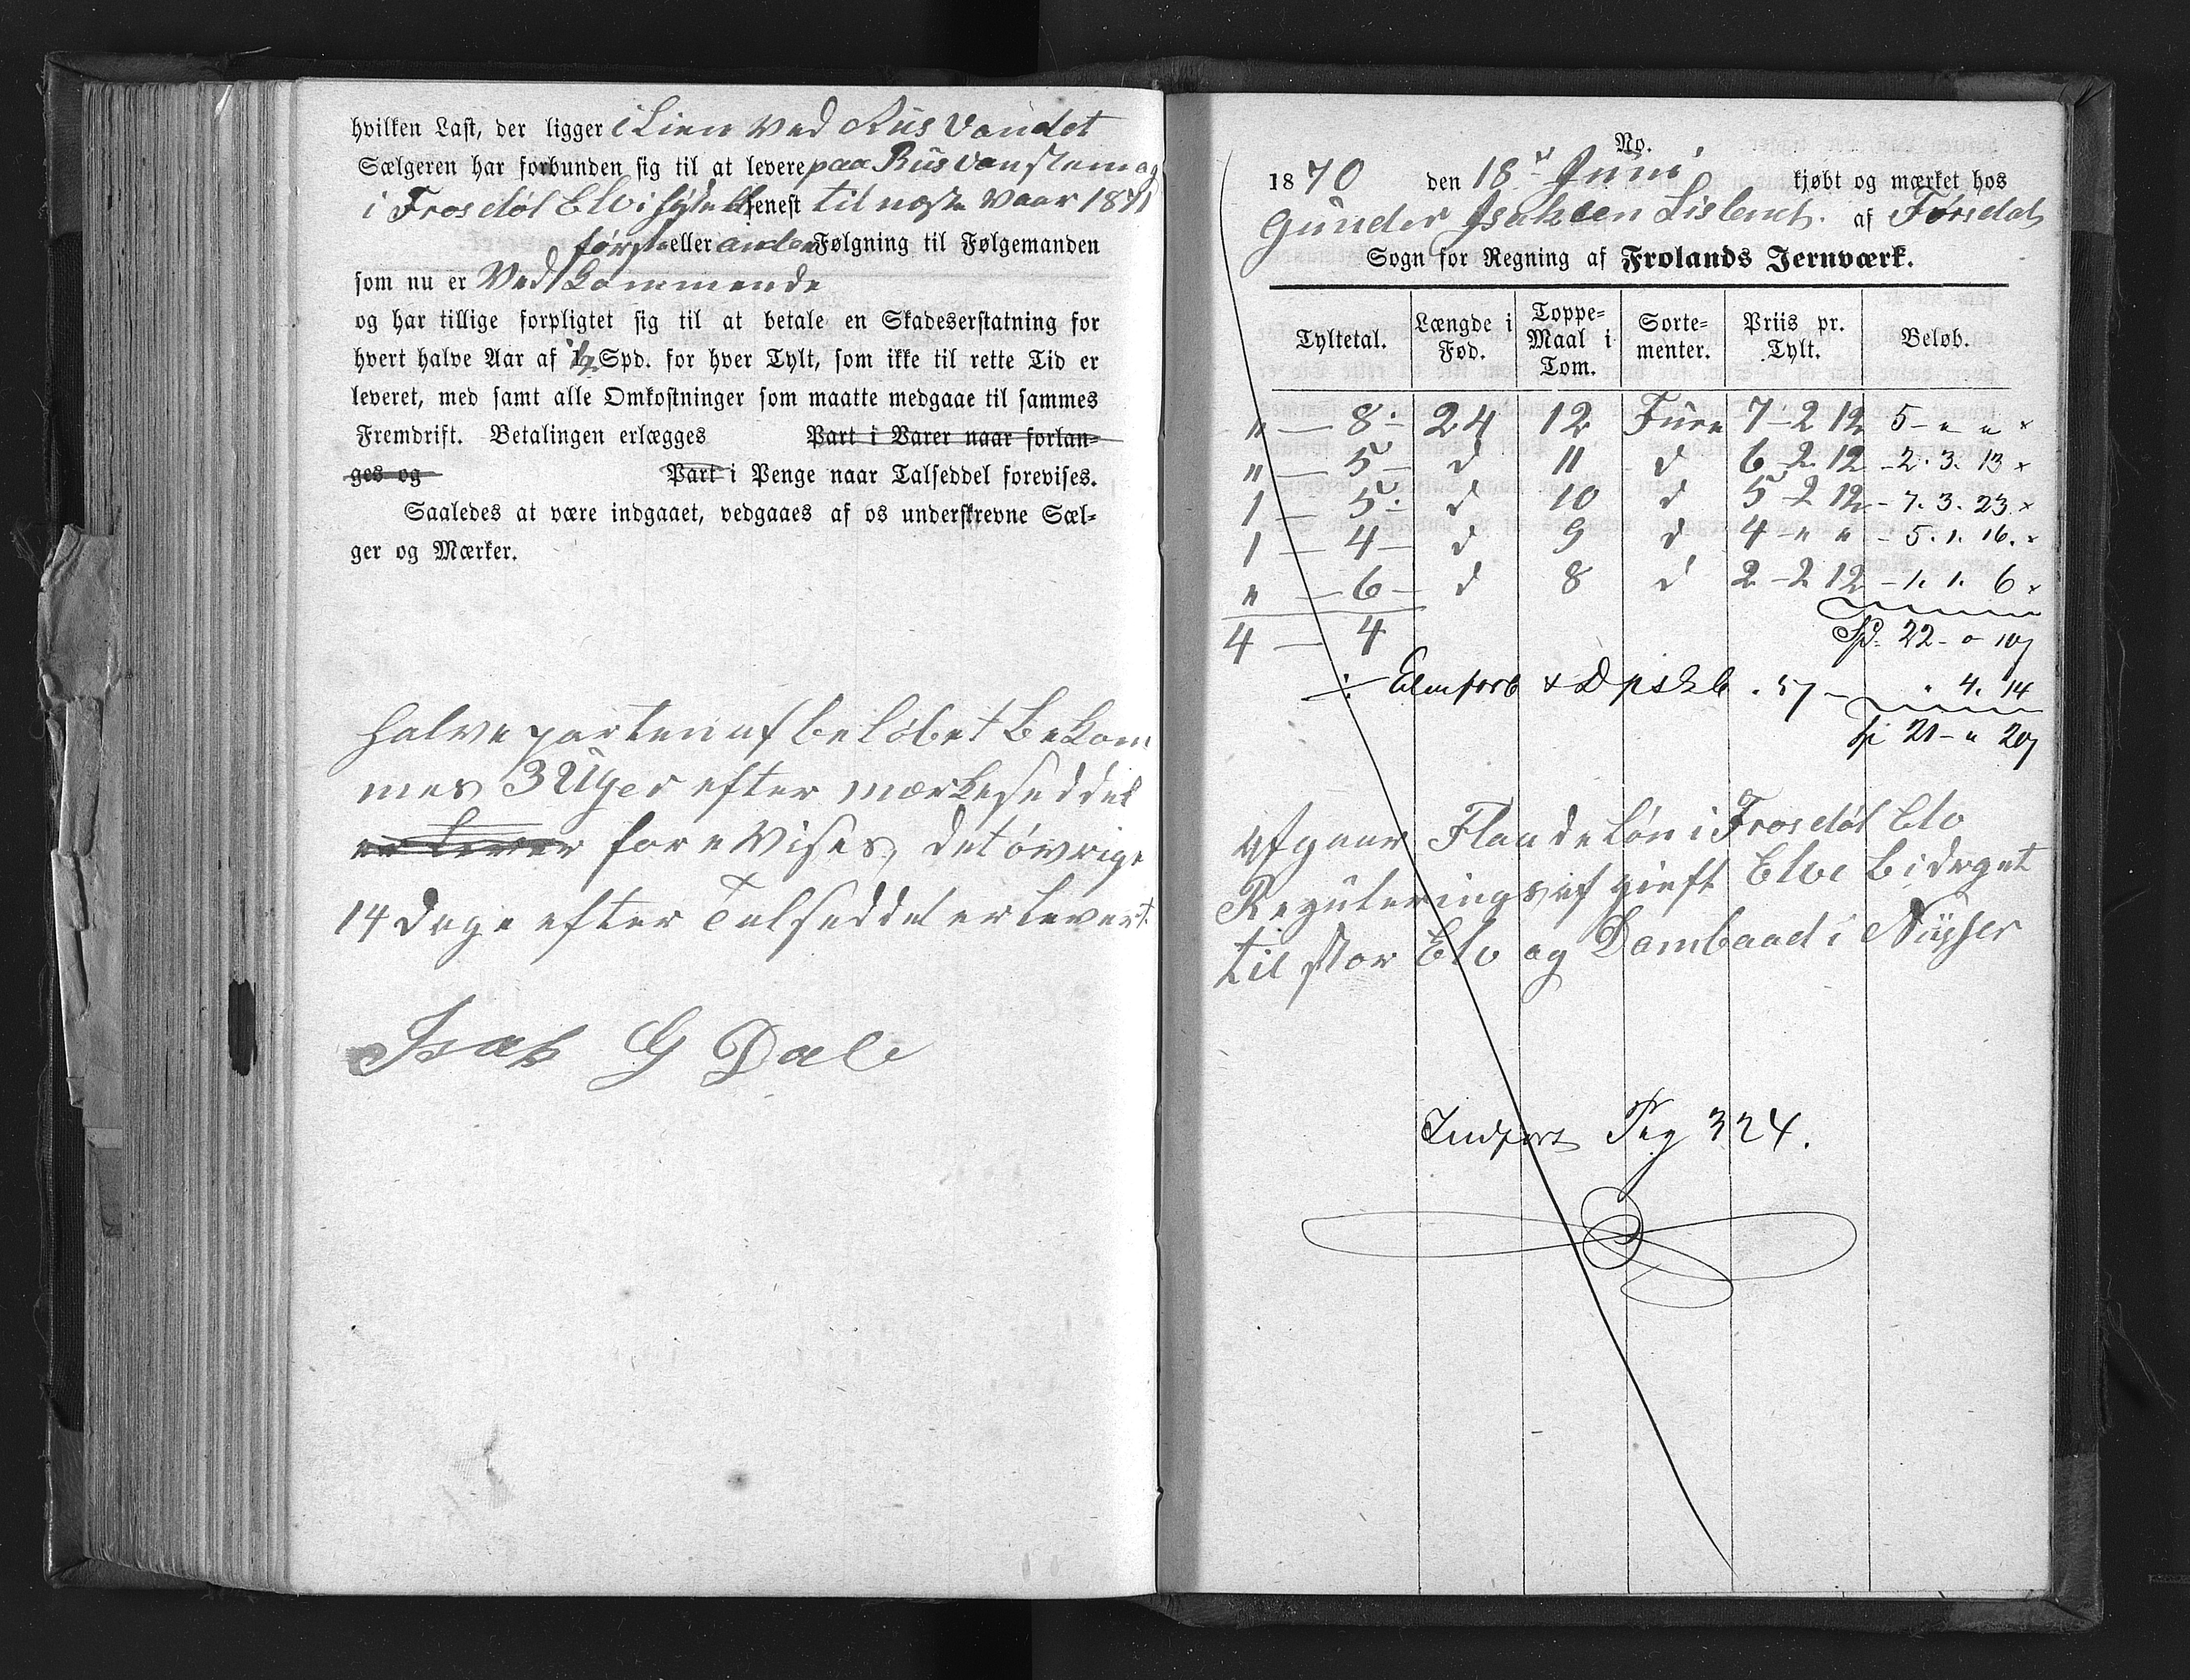 hvilken Last, der ligger i Lien ved Rus Vandet
Sælgeren har forbunden sig til at levere paa Rusvanstem og
i Frosdøl Elv i senest til næste Vaar 1871
første eller anden Følgning til Følgemanden
som nu er Vedkommende
og har tillige forpligtet sig til at betale en Skadeserstatning for
hvert halve Aar af 1/2 Spd. for hver Tylt, som ikke til rette Tid er
leveret, med samt alle Omkostninger som maatte medgaae til sammes
Fremdrift. Betalingen erlægges Part i Varer naar forlan-
ges og Part i Penge naar Talseddel forevises.
Saaledes at være indgaaet, vedgaaes af os underskrevne Sæl-
ger og Mærker.
Halve parten af beløbet bekom
mes 3 Uger efter mærkeseddel
er lever for e Vises, det øvrige
14 Dage efter Talseddel er levert
Isak G Dale
No.
1870 den 18de Juni kjøbt og mærket hos
Gunder Isaksen af Førisdal
Sogn for Regning af Frolands Jernværk.
Tyltetal. Længde i Fod. Toppe-Maal i Tom. Sorte-menter. Priis pr. Tylt. Beløb.
" — 8 - 24 12 Furu 7 - 2 12 5 - " " ×
" — 5 - d 11 d 6 - 2 12 - 2. 3. 13 ×
1 — 5 - d 10 d 5 - 2 12 - 7. 3. 23 ×
1 — 4 - d 9 d 4 - " " - 5. 1. 16. ×
" — 6 - d 8 d 2 - 2 12 - 1. 1. 6 ×
4 — 4 Spd. 22 - o 10
÷ . 57 - " 4. 14
Sp 21 - " 20
Afgaar Flaadeløn i Frosdøl Elv
Reguleringsafgieft Elve bidraget
til stor Elv og Dambaand i Nysser
Indført Pag 324.